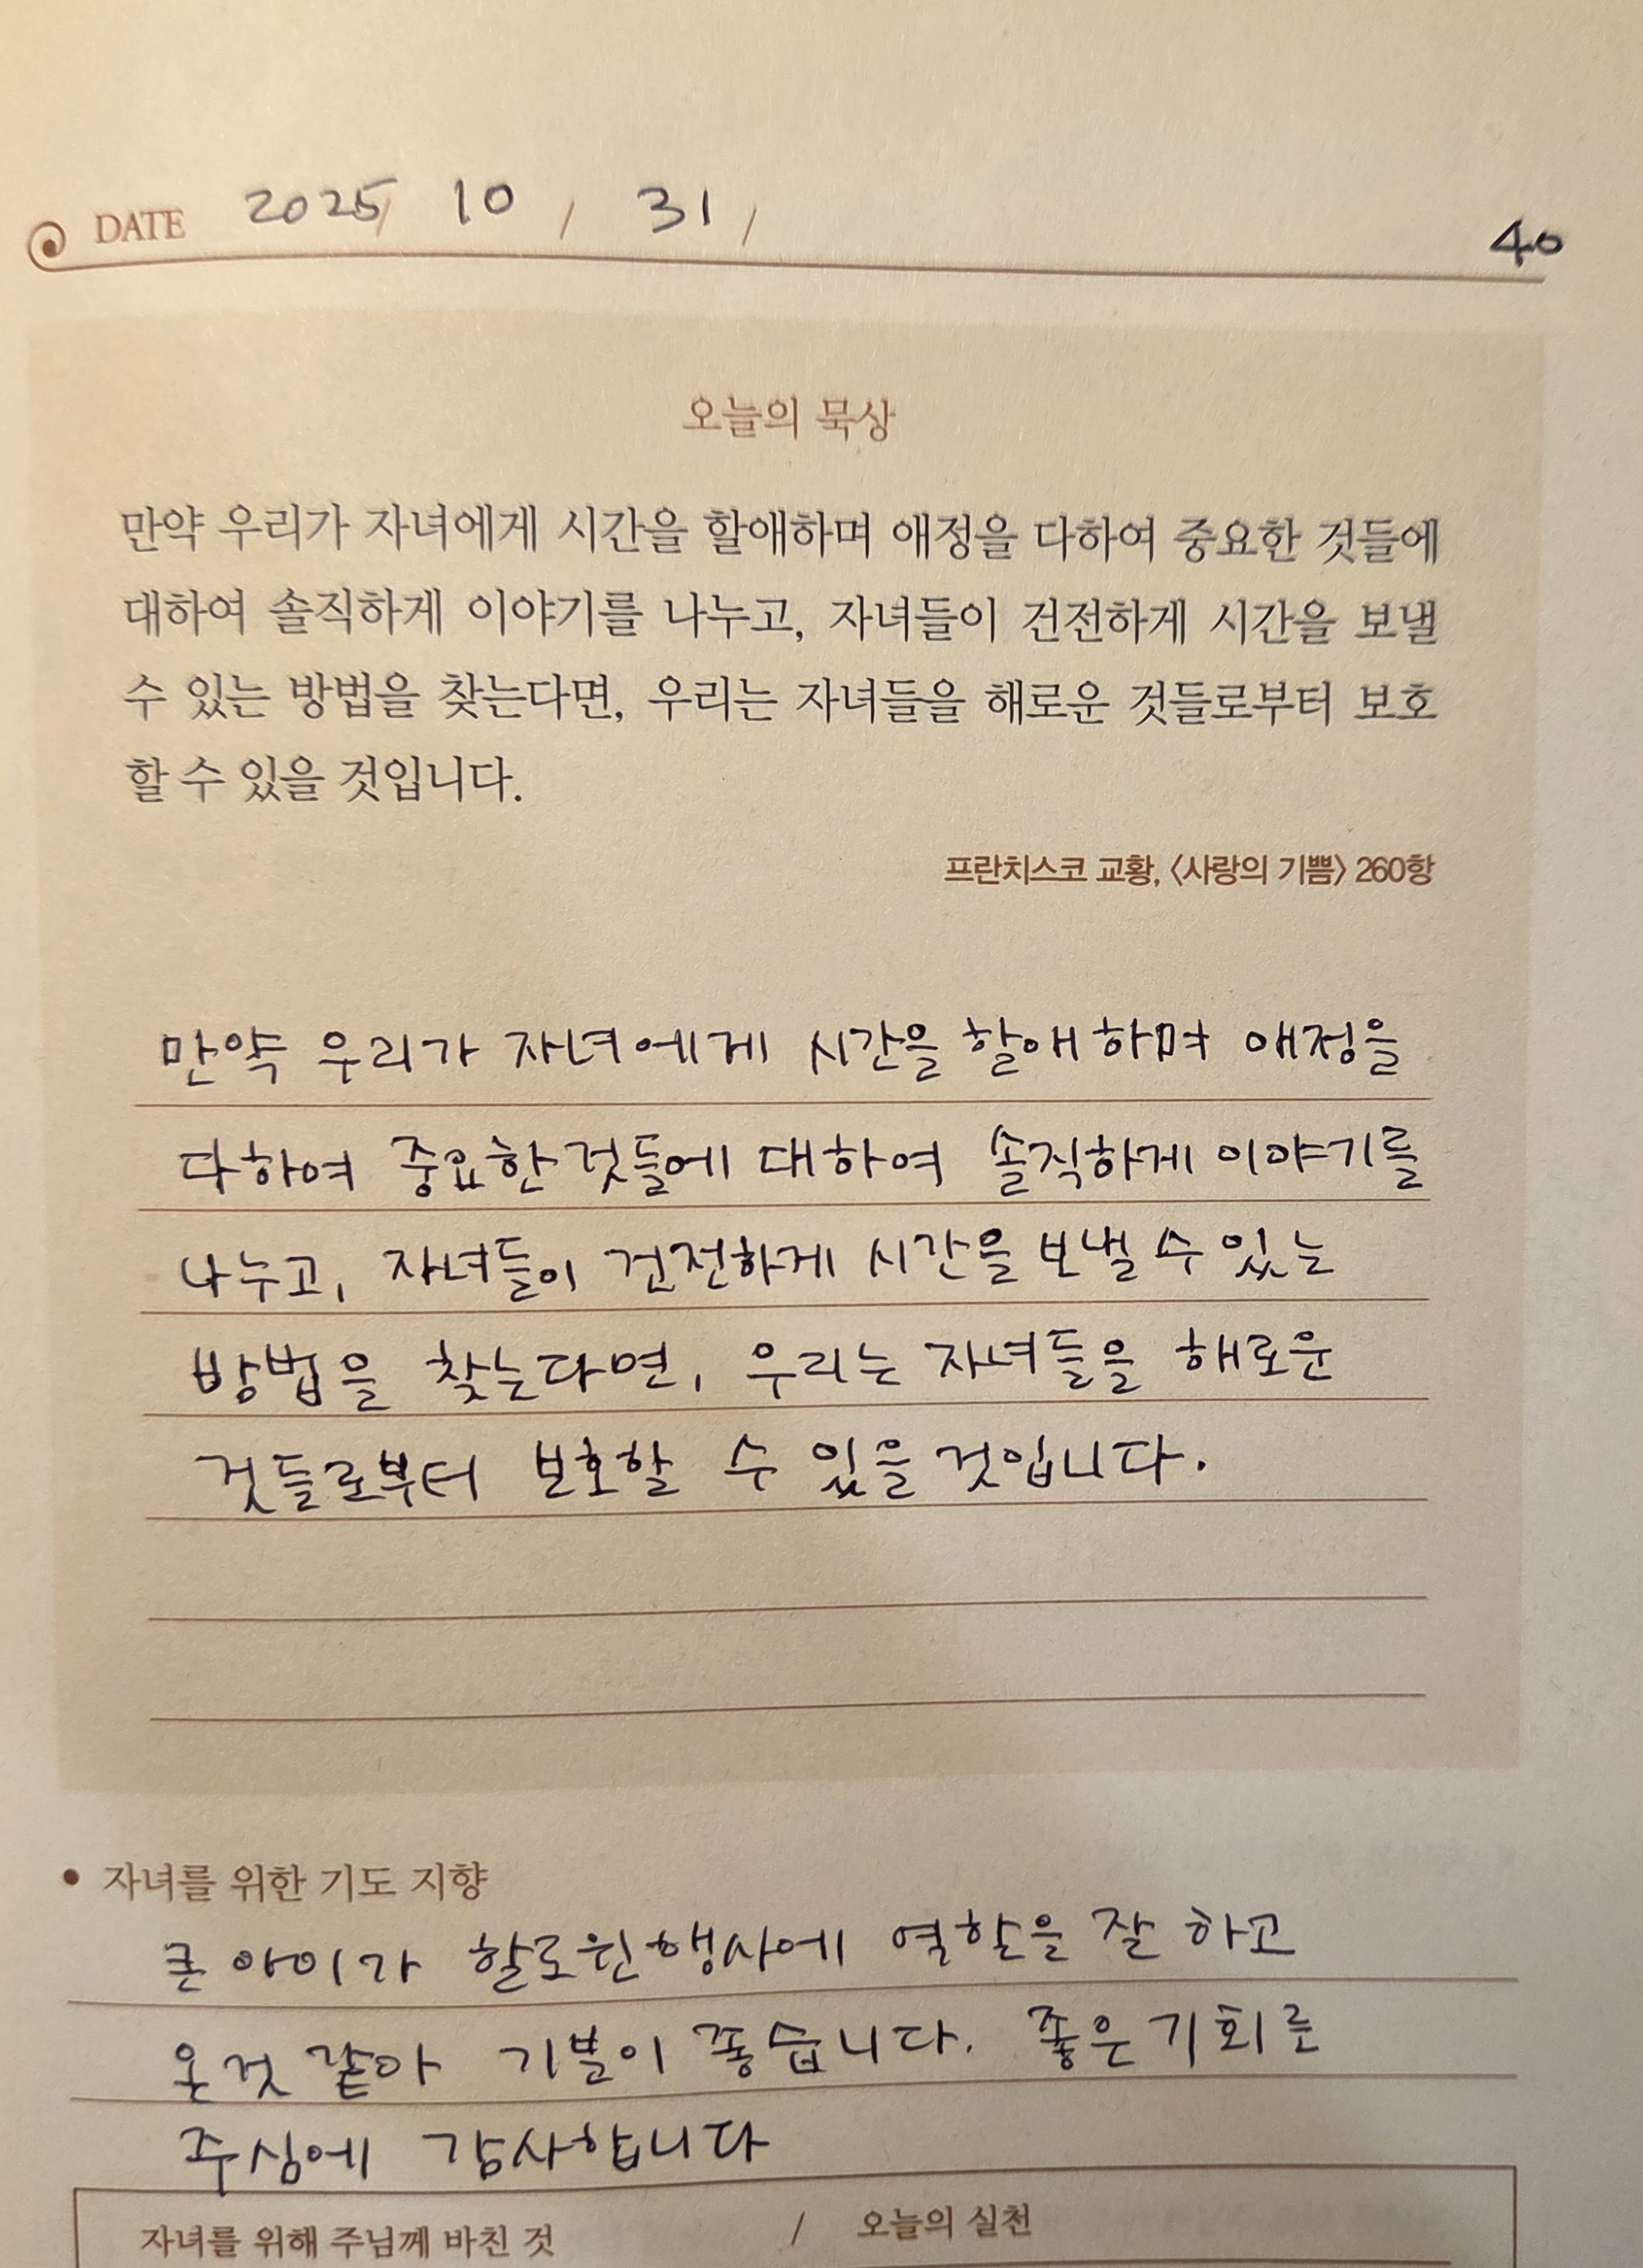 DATE 2025 / 10 / 31 /
40
오늘의 묵상
만약 우리가 자녀에게 시간을 할애하며 애정을 다하여 중요한 것들에
대하여 솔직하게 이야기를 나누고, 자녀들이 건전하게 시간을 보낼
수 있는 방법을 찾는다면, 우리는 자녀들을 해로운 것들로부터 보호
할 수 있을 것입니다.
프란치스코 교황, 〈사랑의 기쁨〉 260항
만약 우리가 자녀에게 시간을 할애하며 애정을
다하여 중요한 것들에 대하여 솔직하게 이야기를
나누고, 자녀들이 건전하게 시간을 보낼 수 있는
방법을 찾는다면, 우리는 자녀들을 해로운
것들로부터 보호할 수 있을 것입니다.
• 자녀를 위한 기도 지향
큰 아이가 할로윈행사에 역할을 잘 하고
온것 같아 기분이 좋습니다. 좋은 기회를
주심에 감사합니다
자녀를 위해 주님께 바친 것 / 오늘의 실천